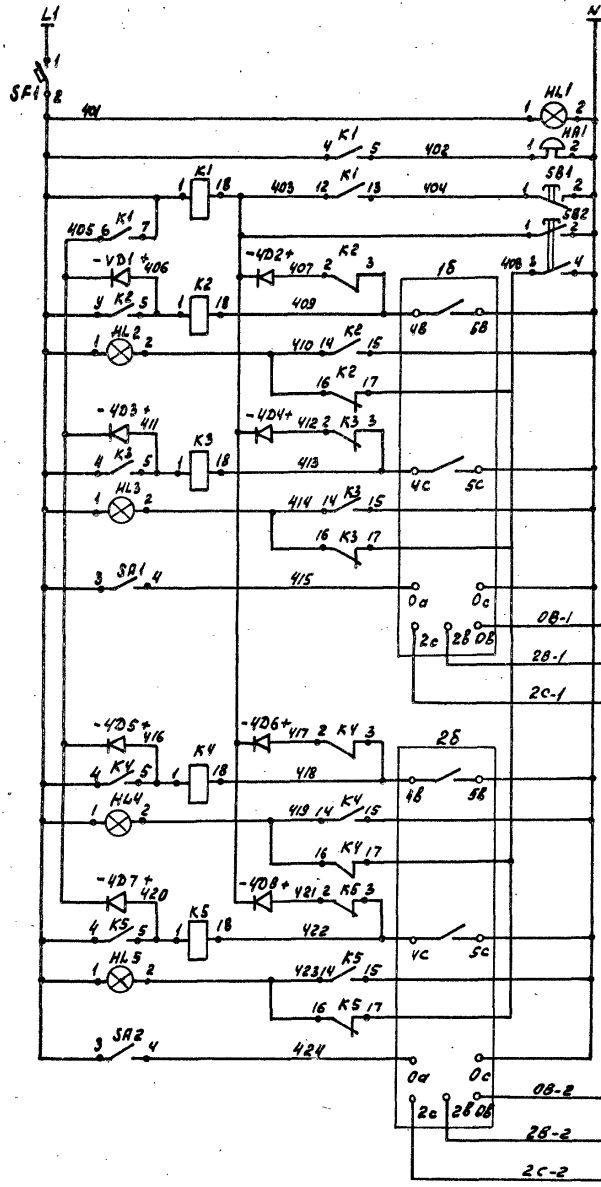 L1 N
1
SF1 2
401 1 HL1 2
4 K1 5 402 1 HA1 2
1 K1 18 403 12 K1 13 404 1 SB1 2
405 6 K1 7 1 SB2 2
-VD1+ 406 -4D2+ 407 2 K2 3 1б 408 3 4
4 K2 5 1 K2 18 409 4В 5В
1 HL2 2 410 14 K2 15
16 K2 17
-4D3+ 411 -4D4+ 412 2 K3 3
4 K3 5 1 K3 18 413 4С 5С
1 HL3 2 414 14 K3 15
16 K3 17
3 SA1 4 415 0а 0с
2с 2в 0в 0В-1
2В-1
2С-1
-4D5+ 416 -4D6+ 417 2 K4 3 2б
4 K4 5 1 K4 18 418 4в 5в
1 HL4 2 419 14 K4 15
16 K4 17
-4D7+ 420 -4D8+ 421 2 K5 3
4 K5 5 1 K5 18 422 4С 5С
1 HL5 2 423 14 K5 15
16 K5 17
3 SA2 4 424 0а 0с
2с 2в 0в 0В-2
2В-2
2С-2